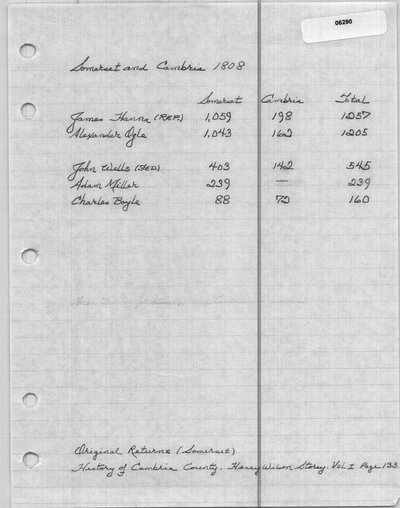 06290
Somerset and Cambria 1808
Somerset Cambria Total
James Hanna (REP) 1,059 198 1257
Alexander Ogle 1,043 162 1205
John Wells (FED) 403 142 545
Adam Miller 239 — 239
Charles Boyle 88 72 160
Original Returns (Somerset)
History of Cambria County. Henry Wilson Storey. Vol I Page 133.